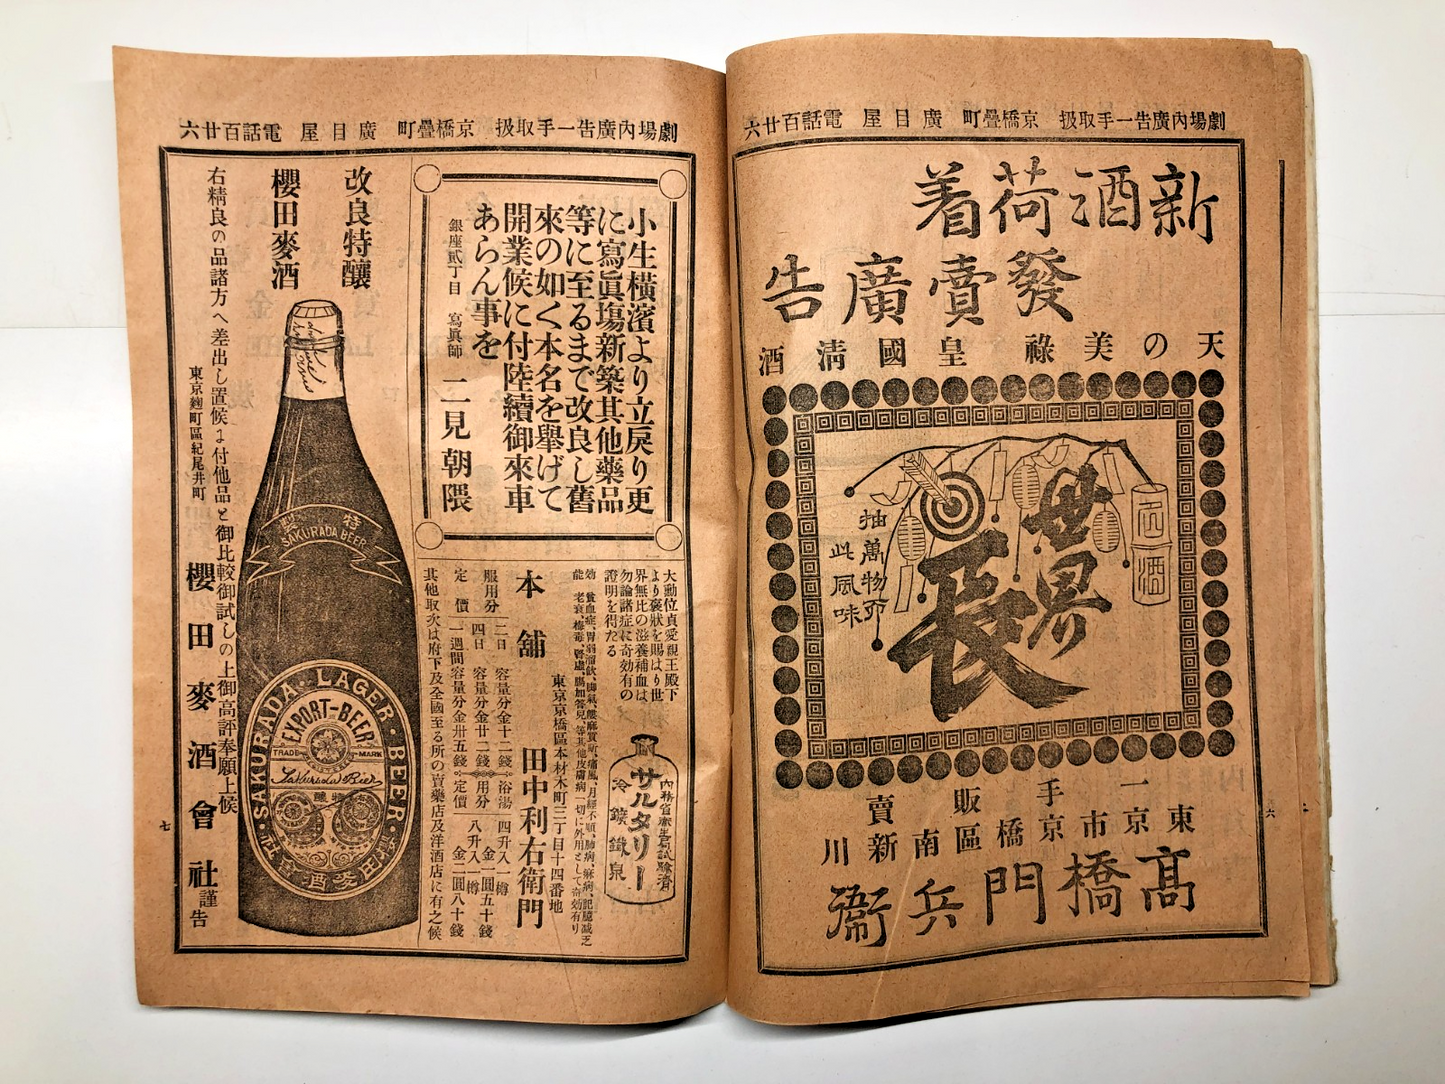 劇場內廣告一手取扱 京橋疊町 廣目屋 電話百廿六
新酒荷着
發賣廣告
天の美祿 皇國淸酒
世界
長
両酒
抽萬物
此風味
一手販賣
東京市京橋區南新川
高橋門兵衞
六
劇場內廣告一手取扱 京橋疊町 廣目屋 電話百廿六
小生橫濱より立戾り更
に寫眞塲新築其他藥品
等に至るまで改良し舊
來の如く本名を擧げて
開業候に付陸續御來車
あらん事を
銀座貳丁目 寫眞師 二見朝隈
大勳位貞愛親王殿下
より褒狀を賜はり世
界無比の滋養補血は、
勿論諸症に奇効有の
證明を得たる
內務省衞生局試驗濟
サルタリー
冷鐵鑛泉
効能
本舖
東京京橋區本材木町三丁目十四番地
田中利右衛門
服用分 二日 容量分金十二錢 浴湯 四升入一樽 金一圓五十錢
四日 容量分金廿二錢 用分 八升入一樽 金二圓八十錢
定價 一週間容量分金卅五錢 定價
其他取次は府下及全國至る所の賣藥店及洋酒店に有之候
改良特釀
櫻田麥酒
特製
SAKURADA BEER
SAKURADA · LAGER · BEER
EXPORT-BEER
TRADE MARK
Sakurada Bier
特釀
櫻田麥酒會社
右精良の品諸方へ差出し置候に付他品と御比較御試しの上御高評奉願上候
東京麴町區紀尾井町
櫻田麥酒會社謹告
七